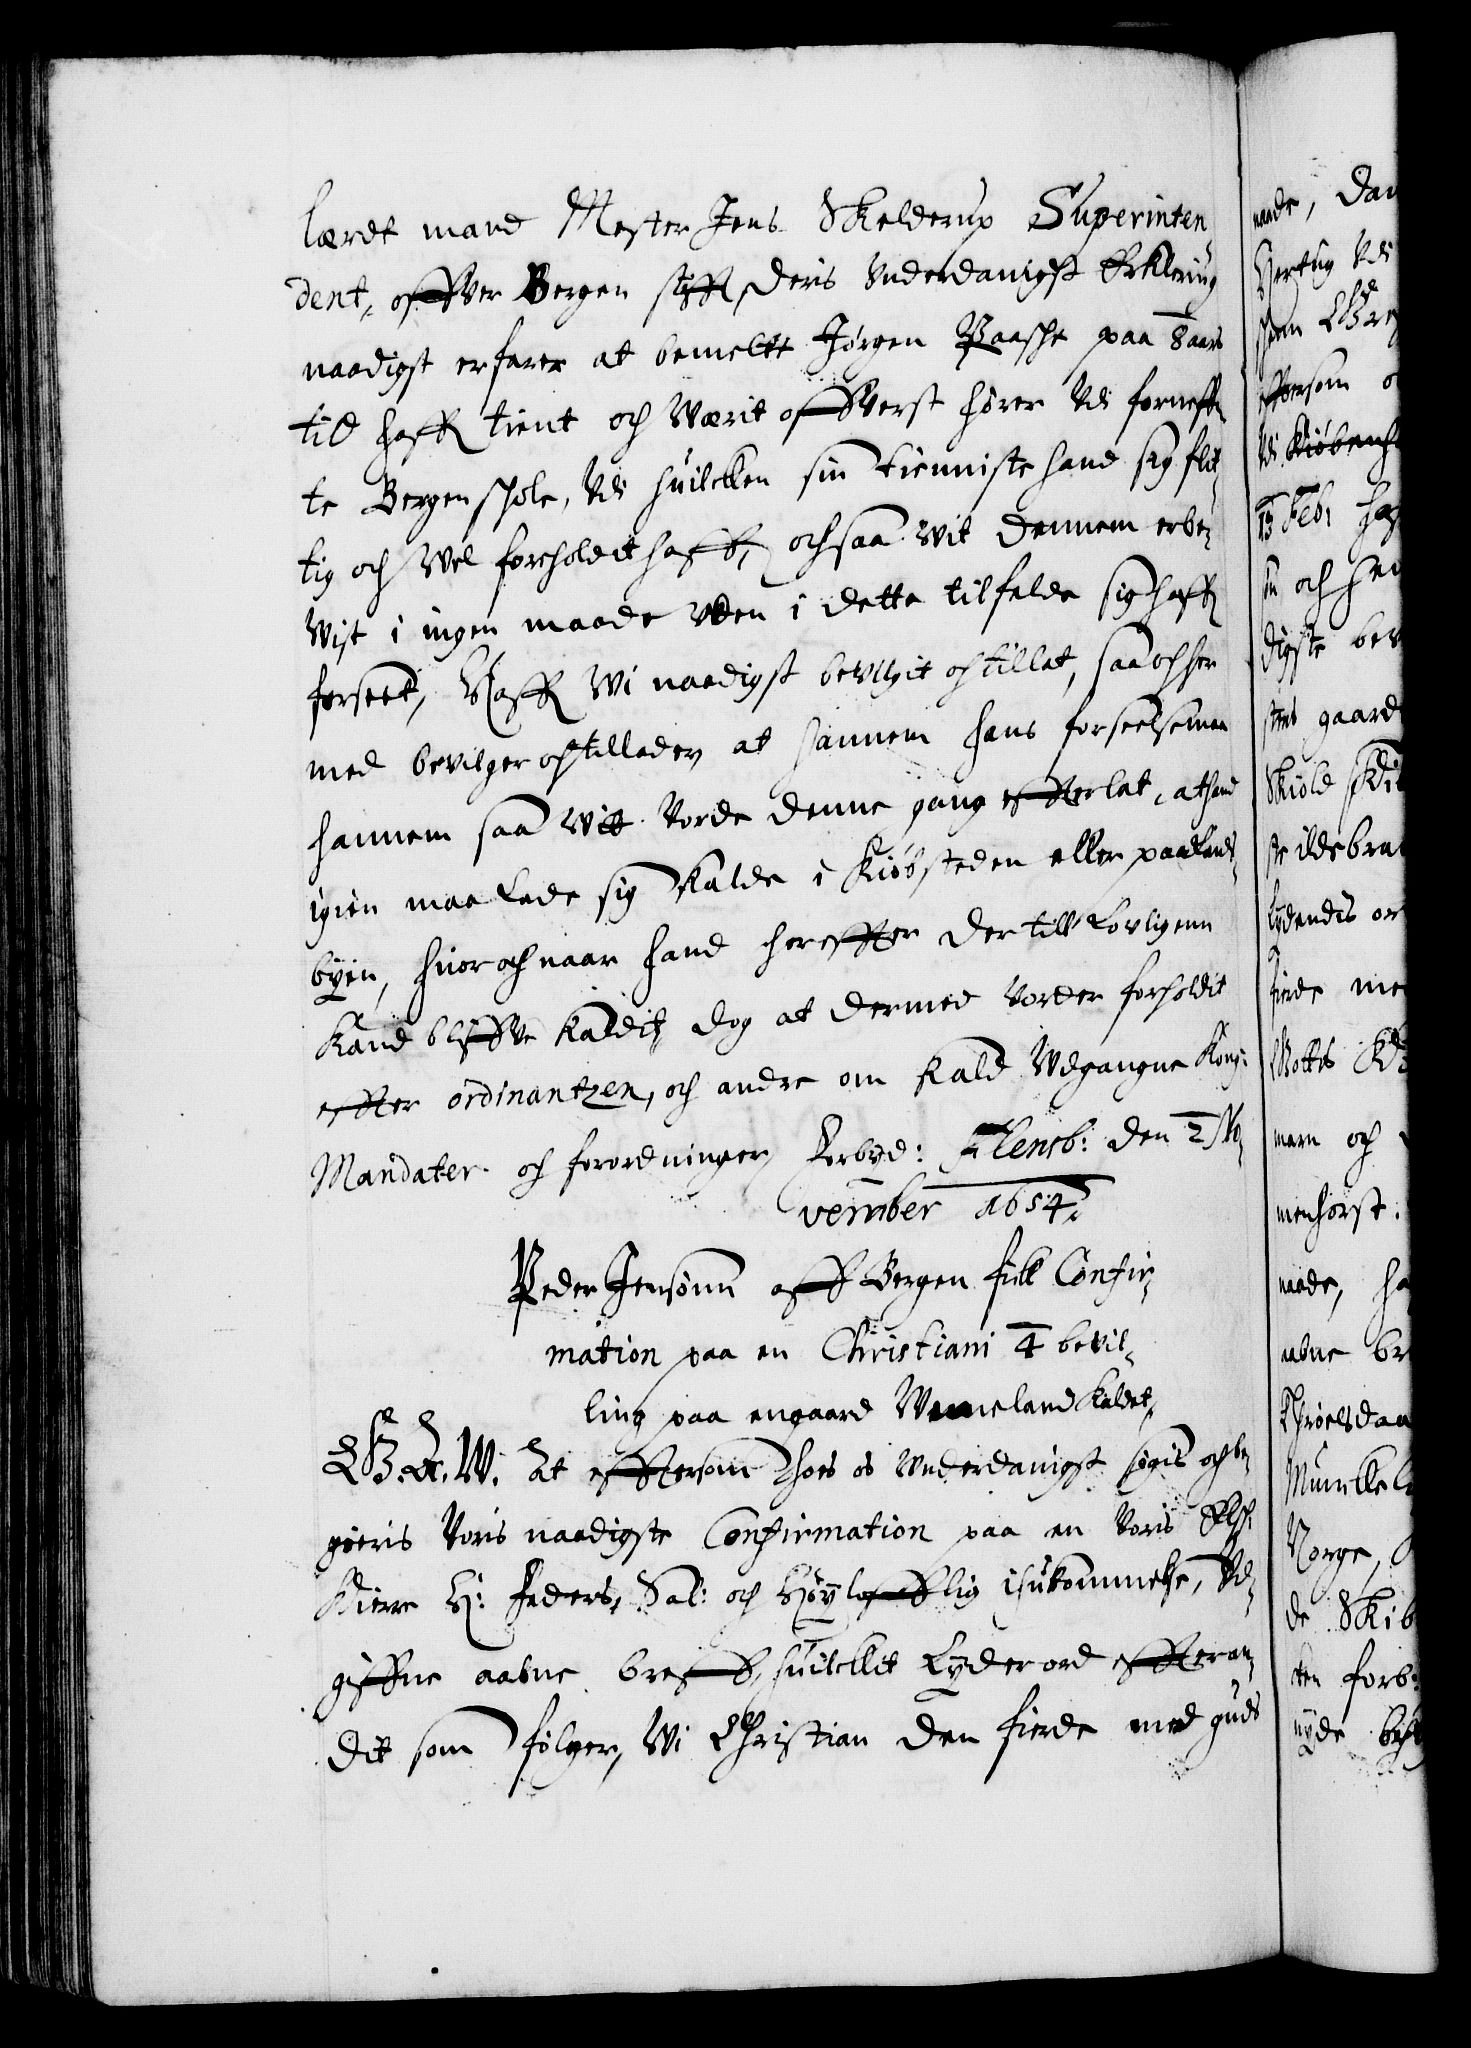 lærdt mand Mester Jens Skelderup Superinten¬
dent, offver Bergen stifft, Deris Underdanigst Erklering
naadigst erfarer at bemelte Jørgen Paaske paa 8 aars
tid haffr tient och Wærit offverst hører Udi forneffn¬
te Bergen schole, Udi huilcken sin tienniste hand sig flit¬
tig och Wel forholdit haffr, och saa Wit dennem erbe¬
Wist i ingen maade Uden i dette tilfelde sig haffr
forseet, Haffr Wi naadigst bevilgit och tillat, saa och her
med bevilger och tillader at hannem hans forseelse maa
hannem saa Witt Vorde denne gang effterlat, at hand
igien maa Lade sig Kalde i Kiøbsteden eller paa Lands¬
byen, huor och naar hand hereffter der till Lovligenn
Kand bliffve Kaldit, dog at dermed Vorder forholdit
effter ordinantzen, och andre om Kald Udgangne Kong:
Mandater och forordninger, Forbyd: Flensb: den 2 No¬
vember 1654.
Peder Jensønn aff Bergen fick Confir¬
mation paa en Christiani 4 bevil¬
ling paa en gaard Wemeland Kaldet,
G. A. W. At effttersom Hoes os Underdanigst søgis och be¬
gieris Voris naadigste Confirmation paa en Voris Elsch:
Kierre H: Faders, Sal: och Høyloflig ihukommelse, Ud¬
giffne aabne breff, huilcket Lyder ord effter an¬
dit som følger, Wi Christian den fierde med guds
naade, Dan
Hertug Udi
effttersom
Udi Kiøbenh
13 Feb:
och
digste bev
gaard
Skiold
ildebra
Lydendis or
fierde me
Gottis
marn och
menhorst.
naade,
aabne br
Munckel
Norge,
de Skib
ten forb:
nyde